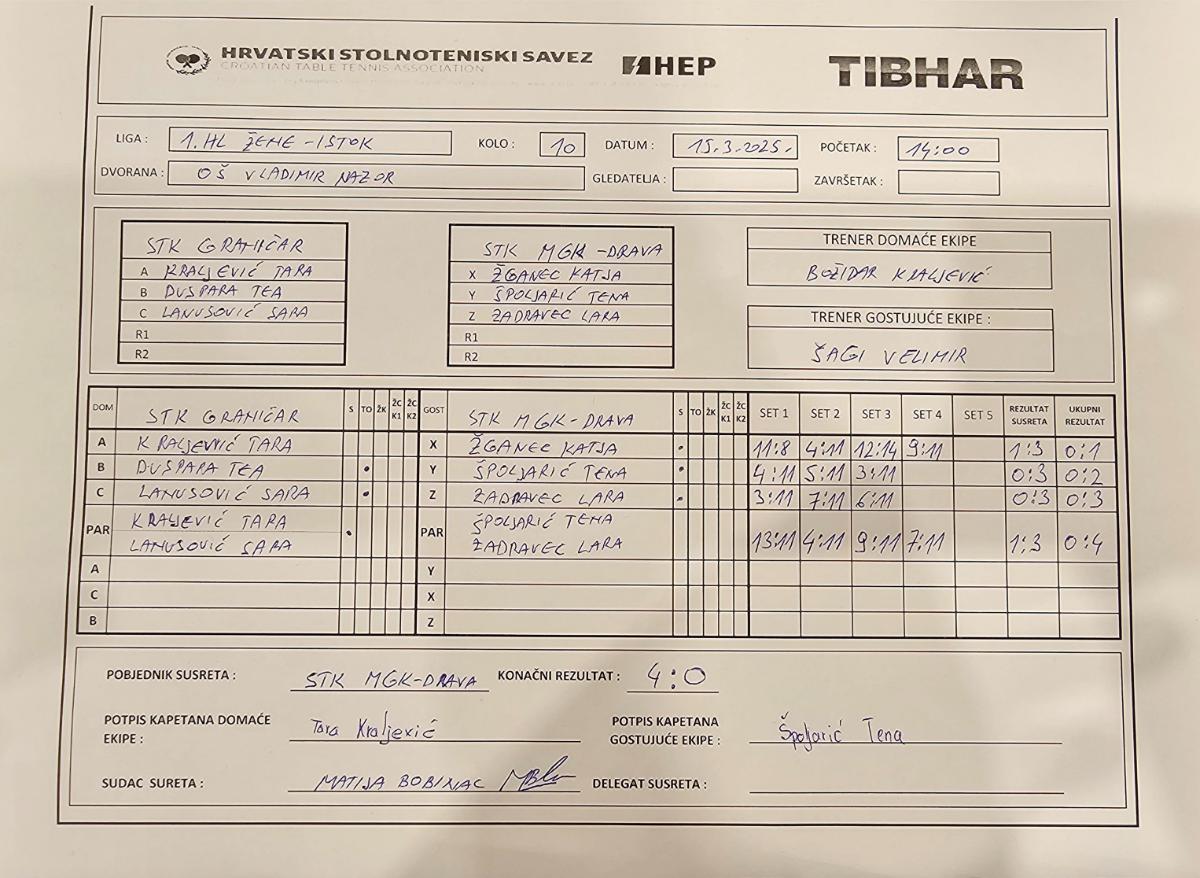 HRVATSKI STOLNOTENISKI SAVEZ
CROATIAN TABLE TENNIS ASSOCIATION
HEP
TIBHAR
LIGA : 1. HL ŽENE - ISTOK KOLO : 10 DATUM : 15.3.2025. POČETAK : 14:00
DVORANA : OŠ VLADIMIR NAZOR GLEDATELJA : ZAVRŠETAK :
STK GRANIČAR
A KRALJEVIĆ TARA
B DUSPARA TEA
C LANUSOVIĆ SARA
R1
R2
STK MGK - DRAVA
X ŽGANEC KATJA
Y ŠPOLJARIĆ TENA
Z ZADRAVEC LARA
R1
R2
TRENER DOMAĆE EKIPE
BOŽIDAR KRALJEVIĆ
TRENER GOSTUJUĆE EKIPE :
ŠAGI VELIMIR
DOM STK GRANIČAR S TO ŽK ŽC K1 ŽC K2 GOST STK MGK-DRAVA S TO ŽK ŽC K1 ŽC K2 SET 1 SET 2 SET 3 SET 4 SET 5 REZULTAT SUSRETA UKUPNI REZULTAT
A KRALJEVIĆ TARA X ŽGANEC KATJA 11:8 4:11 12:14 9:11 1:3 0:1
B DUSPARA TEA Y ŠPOLJARIĆ TENA 4:11 5:11 3:11 0:3 0:2
C LANUSOVIĆ SARA Z ZADRAVEC LARA 3:11 7:11 6:11 0:3 0:3
KRALJEVIĆ TARA ŠPOLJARIĆ TENA
PAR LANUSOVIĆ SARA PAR ZADRAVEC LARA 13:11 4:11 9:11 7:11 1:3 0:4
A Y
C X
B Z
POBJEDNIK SUSRETA : STK MGK-DRAVA KONAČNI REZULTAT : 4:0
POTPIS KAPETANA DOMAĆE EKIPE : Tara Kraljević
POTPIS KAPETANA GOSTUJUĆE EKIPE : Špoljarić Tena
SUDAC SURETA : MATIJA BOBINAC DELEGAT SUSRETA :